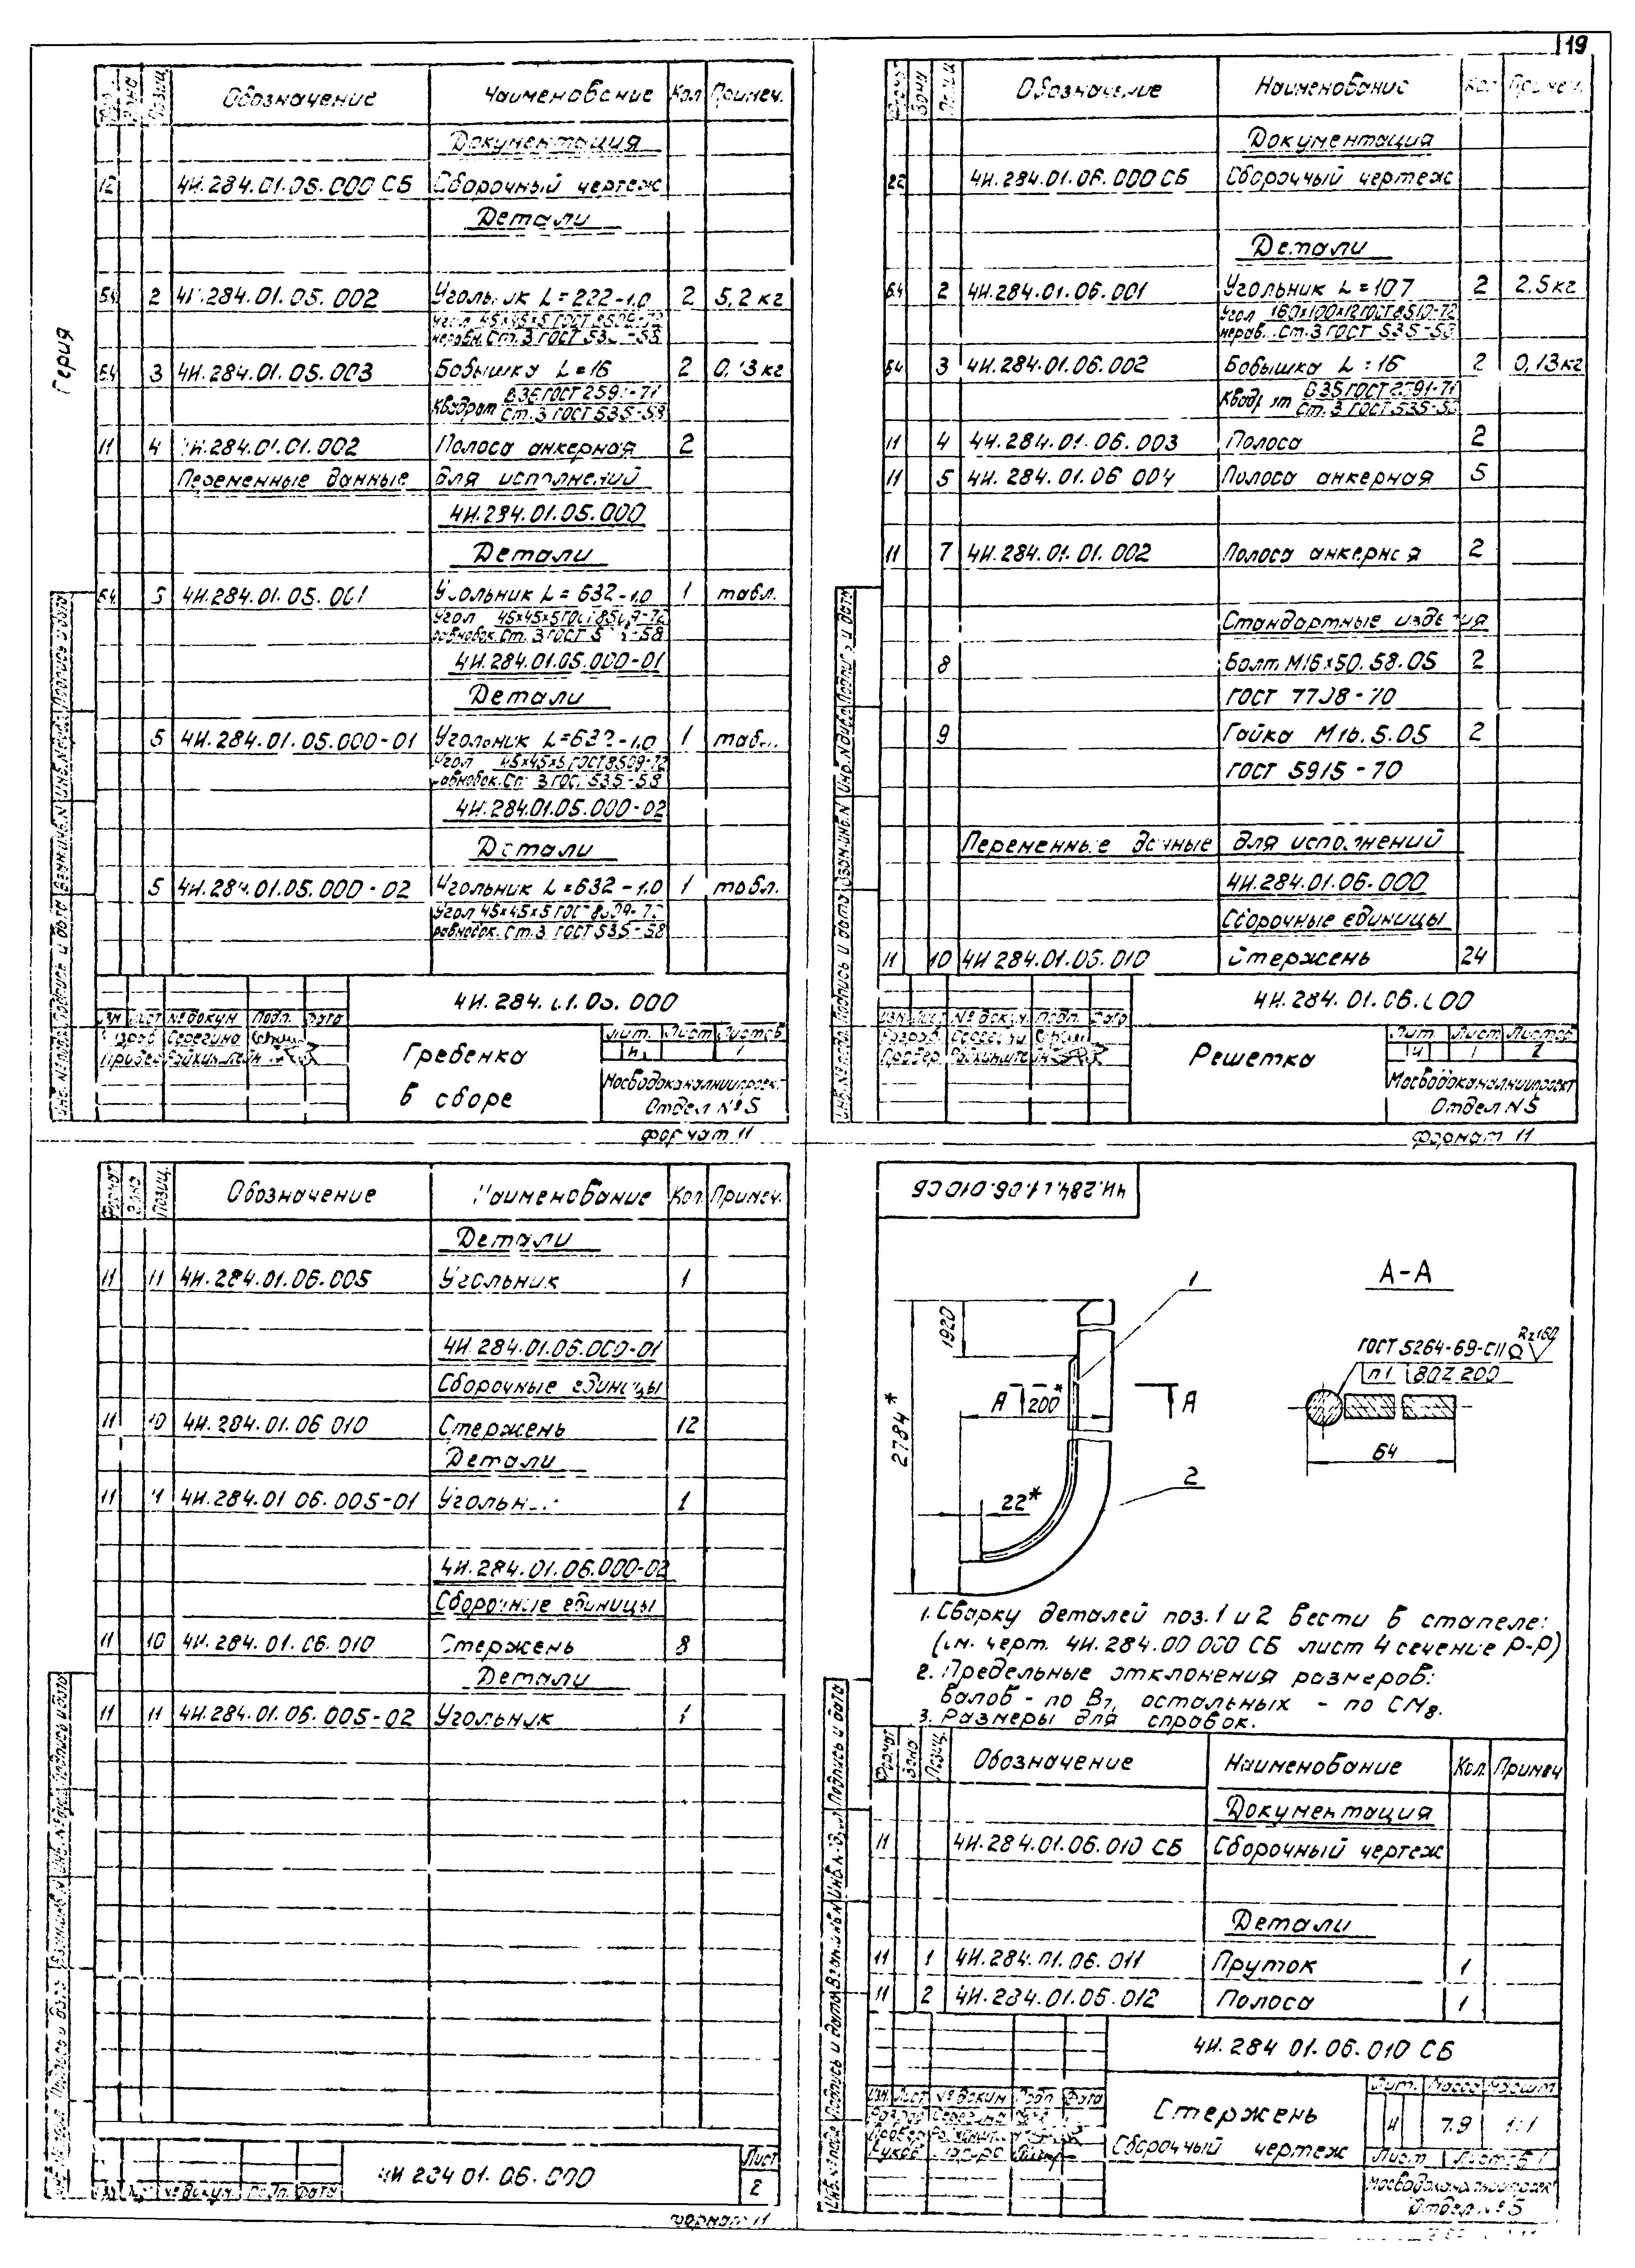 119
Серия
Обозначение Наименование Кол Примеч.
Документация
12 4И.284.01.05.000 СБ Сборочный чертеж
Детали
б.ч. 2 4И.284.01.05.002 Угольник L=222-1.0 2 5,2 кг
Угол 45х45х5 ГОСТ 8509-72
неравн. Ст.3 ГОСТ 535-58
б.ч. 3 4И.284.01.05.003 Бобышка L=16 2 0,13 кг
Квадрат В35 ГОСТ 2591-71
Ст.3 ГОСТ 535-58
11 4 4И.284.01.01.002 Полоса анкерная 2
Переменные данные для исполнений
4И.284.01.05.000
Детали
б.ч. 5 4И.284.01.05.001 Угольник L=632-1.0 1 табл.
Угол 45х45х5 ГОСТ 8509-72
равнобок. Ст.3 ГОСТ 535-58
4И.284.01.05.000-01
Детали
5 4И.284.01.05.000-01 Угольник L=632-1.0 1 табл.
Угол 45х45х5 ГОСТ 8509-72
равнобок. Ст 3 ГОСТ 535-58
4И.284.01.05.000-02
Детали
5 4И.284.01.05.000-02 Угольник L=632-1.0 1 табл.
Угол 45х45х5 ГОСТ 8509-72
равнобок. Ст.3 ГОСТ 535-58
4И.284.01.05.000
Изм Лист № докум Подп. Дата
Разраб Серегина
Провер Райхинштейн
Гребенка
в сборе
Лит. Лист Листов
И 1
Мосводоканалниипроект
Отдел №5
Формат 11
Формат Зона Позиц. Обозначение Наименование Кол Примеч.
Документация
22 4И.284.01.06.000 СБ Сборочный чертеж
Детали
б.ч. 2 4И.284.01.06.001 Угольник L=107 2 2.5 кг
Угол 160х100х12 ГОСТ 8510-72
нерав. Ст.3 ГОСТ 535-58
б.ч. 3 4И.284.01.06.002 Бобышка L=16 2 0,13 кг
Квадрат В35 ГОСТ 2591-71
Ст.3 ГОСТ 535-58
11 4 4И.284.01.06.003 Полоса 2
11 5 4И.284.01.06 004 Полоса анкерная 5
11 7 4И.284.01.01.002 Полоса анкерная 2
Стандартные изделия
8 Болт М16х50.58.05 2
ГОСТ 7798-70
9 Гайка М16.5.05 2
ГОСТ 5915-70
Переменные данные для исполнений
4И.284.01.06.000
Сборочные единицы
11 10 4И 284.01.06.010 Стержень 24
4И.284.01.06.000
Изм Лист № докум Подп. Дата
Разраб. Серегина
Провер. Райхинштейн
Решетка
Лит Лист Листов
И 1 2
Мосводоканалниипроект
Отдел №5
Формат 11
Формат Зона Позиц. Обозначение Наименование Кол Примеч.
Детали
11 11 4И.284.01.06.005 Угольник 1
4И.284.01.06.000-01
Сборочные единицы
11 10 4И.284.01.06 010 Стержень 12
Детали
11 11 4И.284.01 06.005-01 Угольник 1
4И.284.01.06.000-02
Сборочные единицы
11 10 4И.284.01.06.010 Стержень 8
Детали
11 11 4И.284.01.06.005-02 Угольник 1
4И 284 01.06.000
Лист
2
Изм Лист № докум. Подп. Дата
Формат 11
4И.284.01.06.010 СБ
1
А-А
1920
2784*
А 200* А
22*
2
ГОСТ 5264-69-С11 Rz160
п1 80Z200
64
1. Сварку деталей поз.1 и 2 вести в стапеле:
(см. черт. 4И.284.00 000 СБ лист 4 сечение Р-Р)
2. Предельные отклонения размеров:
валов - по В7, остальных - по СМ8.
3. Размеры для справок.
Формат Зона Позиц. Обозначение Наименование Кол Примеч
Документация
11 4И.284.01.06.010 СБ Сборочный чертеж
Детали
11 1 4И.284.01.06.011 Пруток 1
11 2 4И.284.01.06.012 Полоса 1
4И.284 01.06.010 СБ
Изм. Лист № докум Подп Дата
Разраб Серегина
Провер Райхинштейн
Стержень
Сборочный чертеж
Лит. Масса Масшт.
И 7.9 1:1
Лист Листов 1
Мосводоканалниипроект
Отдел №5